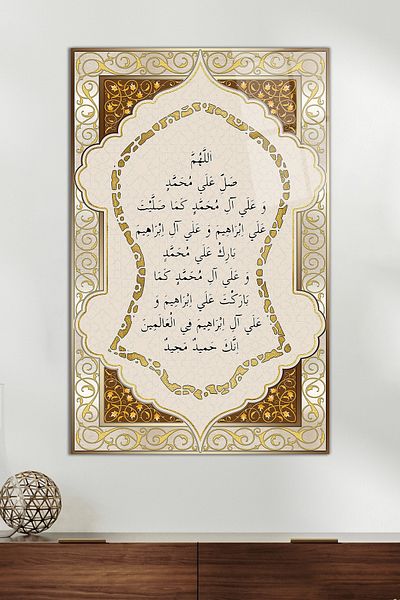 اَللَّهُمَّ
صَلِّ عَلَي مُحَمَّدٍ
وَ عَلَي آلِ مُحَمَّدٍ كَمَا صَلَّيْتَ
عَلَي اِبْرَاهِيمَ وَ عَلَي آلِ اِبْرَاهِيمَ
بَارِكْ عَلَي مُحَمَّدٍ
وَ عَلَي آلِ مُحَمَّدٍ كَمَا
بَارَكْتَ عَلَي اِبْرَاهِيمَ وَ
عَلَي آلِ اِبْرَاهِيمَ فِي الْعَالَمِينَ
اِنَّكَ حَمِيدٌ مَجِيدٌ